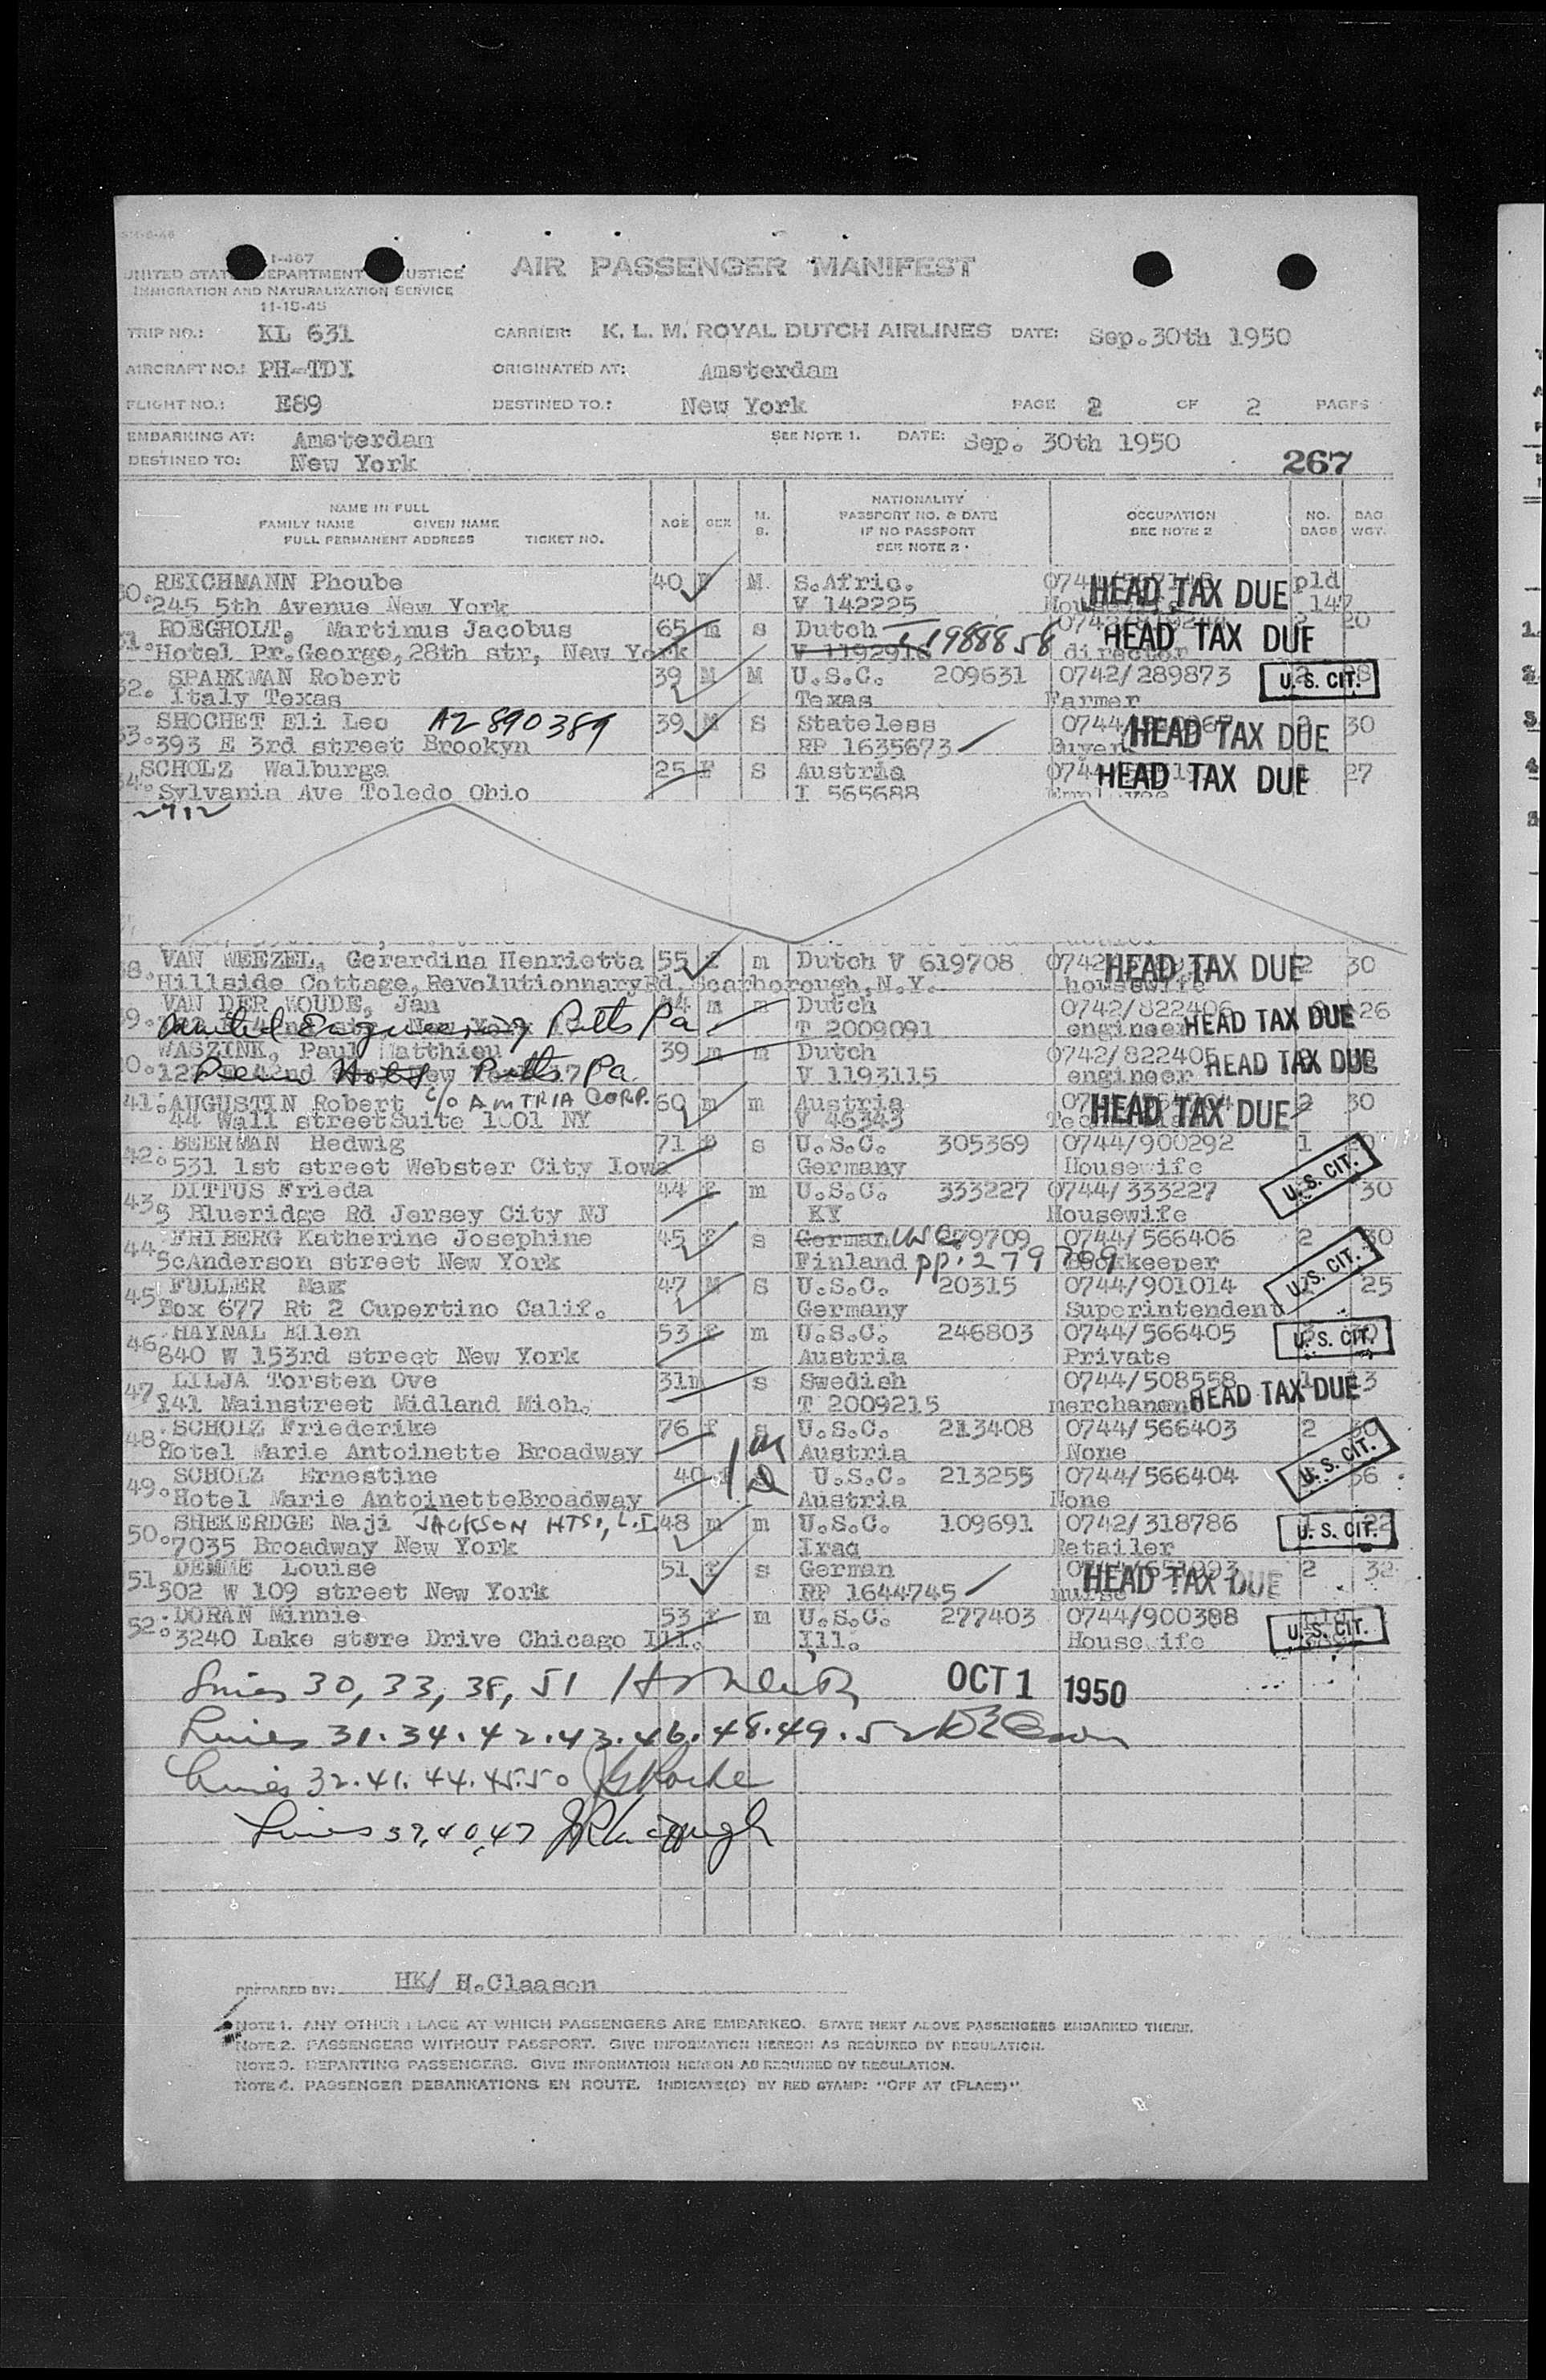 I-467
UNITED STATES DEPARTMENT OF JUSTICE
IMMIGRATION AND NATURALIZATION SERVICE
11-15-45
AIR PASSENGER MANIFEST
TRIP NO.: KL 631 CARRIER: K. L. M. ROYAL DUTCH AIRLINES DATE: Sep.30th 1950
AIRCRAFT NO.: PH-TDI ORIGINATED AT: Amsterdam
FLIGHT NO.: E89 DESTINED TO.: New York PAGE 2 OF 2 PAGES
EMBARKING AT: Amsterdan SEE NOTE 1. DATE: Sep. 30th 1950
DESTINED TO: New York 267
NAME IN FULL
FAMILY NAME GIVEN NAME
FULL PERMANENT ADDRESS TICKET NO.
AGE SEX M. S.
NATIONALITY
PASSPORT NO. & DATE
IF NO PASSPORT
SEE NOTE 2.
OCCUPATION
SEE NOTE 2
NO. BAGS BAG WGT.
30. REICHMANN Phoube 40 F M S.Afric. HEAD TAX DUE pld
245 5th Avenue New York V 142225 147
31. ROEGHOLT, Martinus Jacobus 65 m s Dutch 1988858 HEAD TAX DUE 20
Hotel Pr.George,28th str, New York V 1192916 director
32. SPARKMAN Robert 39 M M U.S.C. 209631 0742/289873 U.S. CIT.
Italy Texas Texas Farmer
33. SHOCHET Eli Leo A2 890389 39 M S Stateless HEAD TAX DUE 30
393 E 3rd street Brookyn RP 1635673 Buyer
34. SCHOLZ Walburga 25 F S Austria HEAD TAX DUE 27
Sylvania Ave Toledo Ohio I 565688
38. VAN WEEZEL, Gerardina Henrietta 55 f m Dutch V 619708 HEAD TAX DUE 2 30
Hillside Cottage,RevolutionnaryRd,Scarborough,N.Y. housewife
39. VAN DER WOUDE, Jan 44 m m Dutch 0742/822406 HEAD TAX DUE 26
United Engineering Pitts Pa T 2009091 engineer
40. WASZINK, Paul Matthieu 39 m m Dutch 0742/822405 HEAD TAX DUE
Pitts Pa. V 1193115 engineer
41. AUGUSTIN Robert c/o AMTRIA CORP. 60 m m Austria HEAD TAX DUE 2 30
44 Wall streetSuite 1001 NY V 46343
42. BEERMAN Hedwig 71 f s U.S.C. 305369 0744/900292 1 U.S. CIT.
531 1st street Webster City Iowa Germany Housewife
43. DITTUS Frieda 44 f m U.S.C. 333227 0744/333227 30
5 Blueridge Rd Jersey City NJ KY Housewife
44. FRIBERG Katherine Josephine 45 f s German USC 279709 0744/566406 2 30 U.S. CIT.
Anderson street New York Finland pp.279709 Bookkeeper
45. FULLER Max 47 M S U.S.C. 20315 0744/901014 25
Box 677 Rt 2 Cupertino Calif. Germany Superintendent
46. HAYNAL Ellen 53 f m U.S.C. 246803 0744/566405 U.S. CIT.
640 W 153rd street New York Austria Private
47. LILJA Torsten Ove 31m s Swedish 0744/508558 HEAD TAX DUE
141 Mainstreet Midland Mich. T 2009215 merchand
48. SCHOLZ Friederike 76 f s U.S.C. 213408 0744/566403 2 30 U.S. CIT.
Hotel Marie Antoinette Broadway Austria None
49. SCHOLZ Ernestine 40 U.S.C. 213255 0744/566404 36
Hotel Marie AntoinetteBroadway Austria None
50. SHEKERDGE Naji JACKSON HTS., L.I. 48 m m U.S.C. 109691 0742/318786 U.S. CIT. 22
7035 Broadway New York Iraq Retailer
51 DEMME Louise 51 f s German HEAD TAX DUE 2 32
302 W 109 street New York RP 1644745 nurse
52. DORAN Minnie 53 f m U.S.C. 277403 0744/900388 U.S. CIT.
3240 Lake store Drive Chicago Ill. Ill. Housewife
Lines 30, 33, 38, 51 OCT 1 1950
Lines 31.34.42.43.46.48.49.52
Lines 32.41.44.45.50
Lines 39,40,47
PREPARED BY: HK/ H.Claason
NOTE 1. ANY OTHER PLACE AT WHICH PASSENGERS ARE EMBARKED. STATE NEXT ABOVE PASSENGERS EMBARKED THERE.
NOTE 2. PASSENGERS WITHOUT PASSPORT. GIVE INFORMATION HEREON AS REQUIRED BY REGULATION.
NOTE 3. DEPARTING PASSENGERS. GIVE INFORMATION HEREON AS REQUIRED BY REGULATION.
NOTE 4. PASSENGER DEBARKATIONS EN ROUTE. INDICATE(D) BY RED STAMP: "OFF AT (PLACE)".